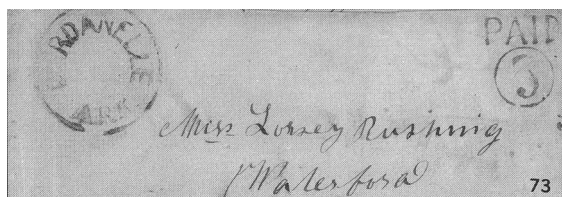 RDANELLE
ARK
PAID
3
Miss Lorsey Rushing
Waterford
73